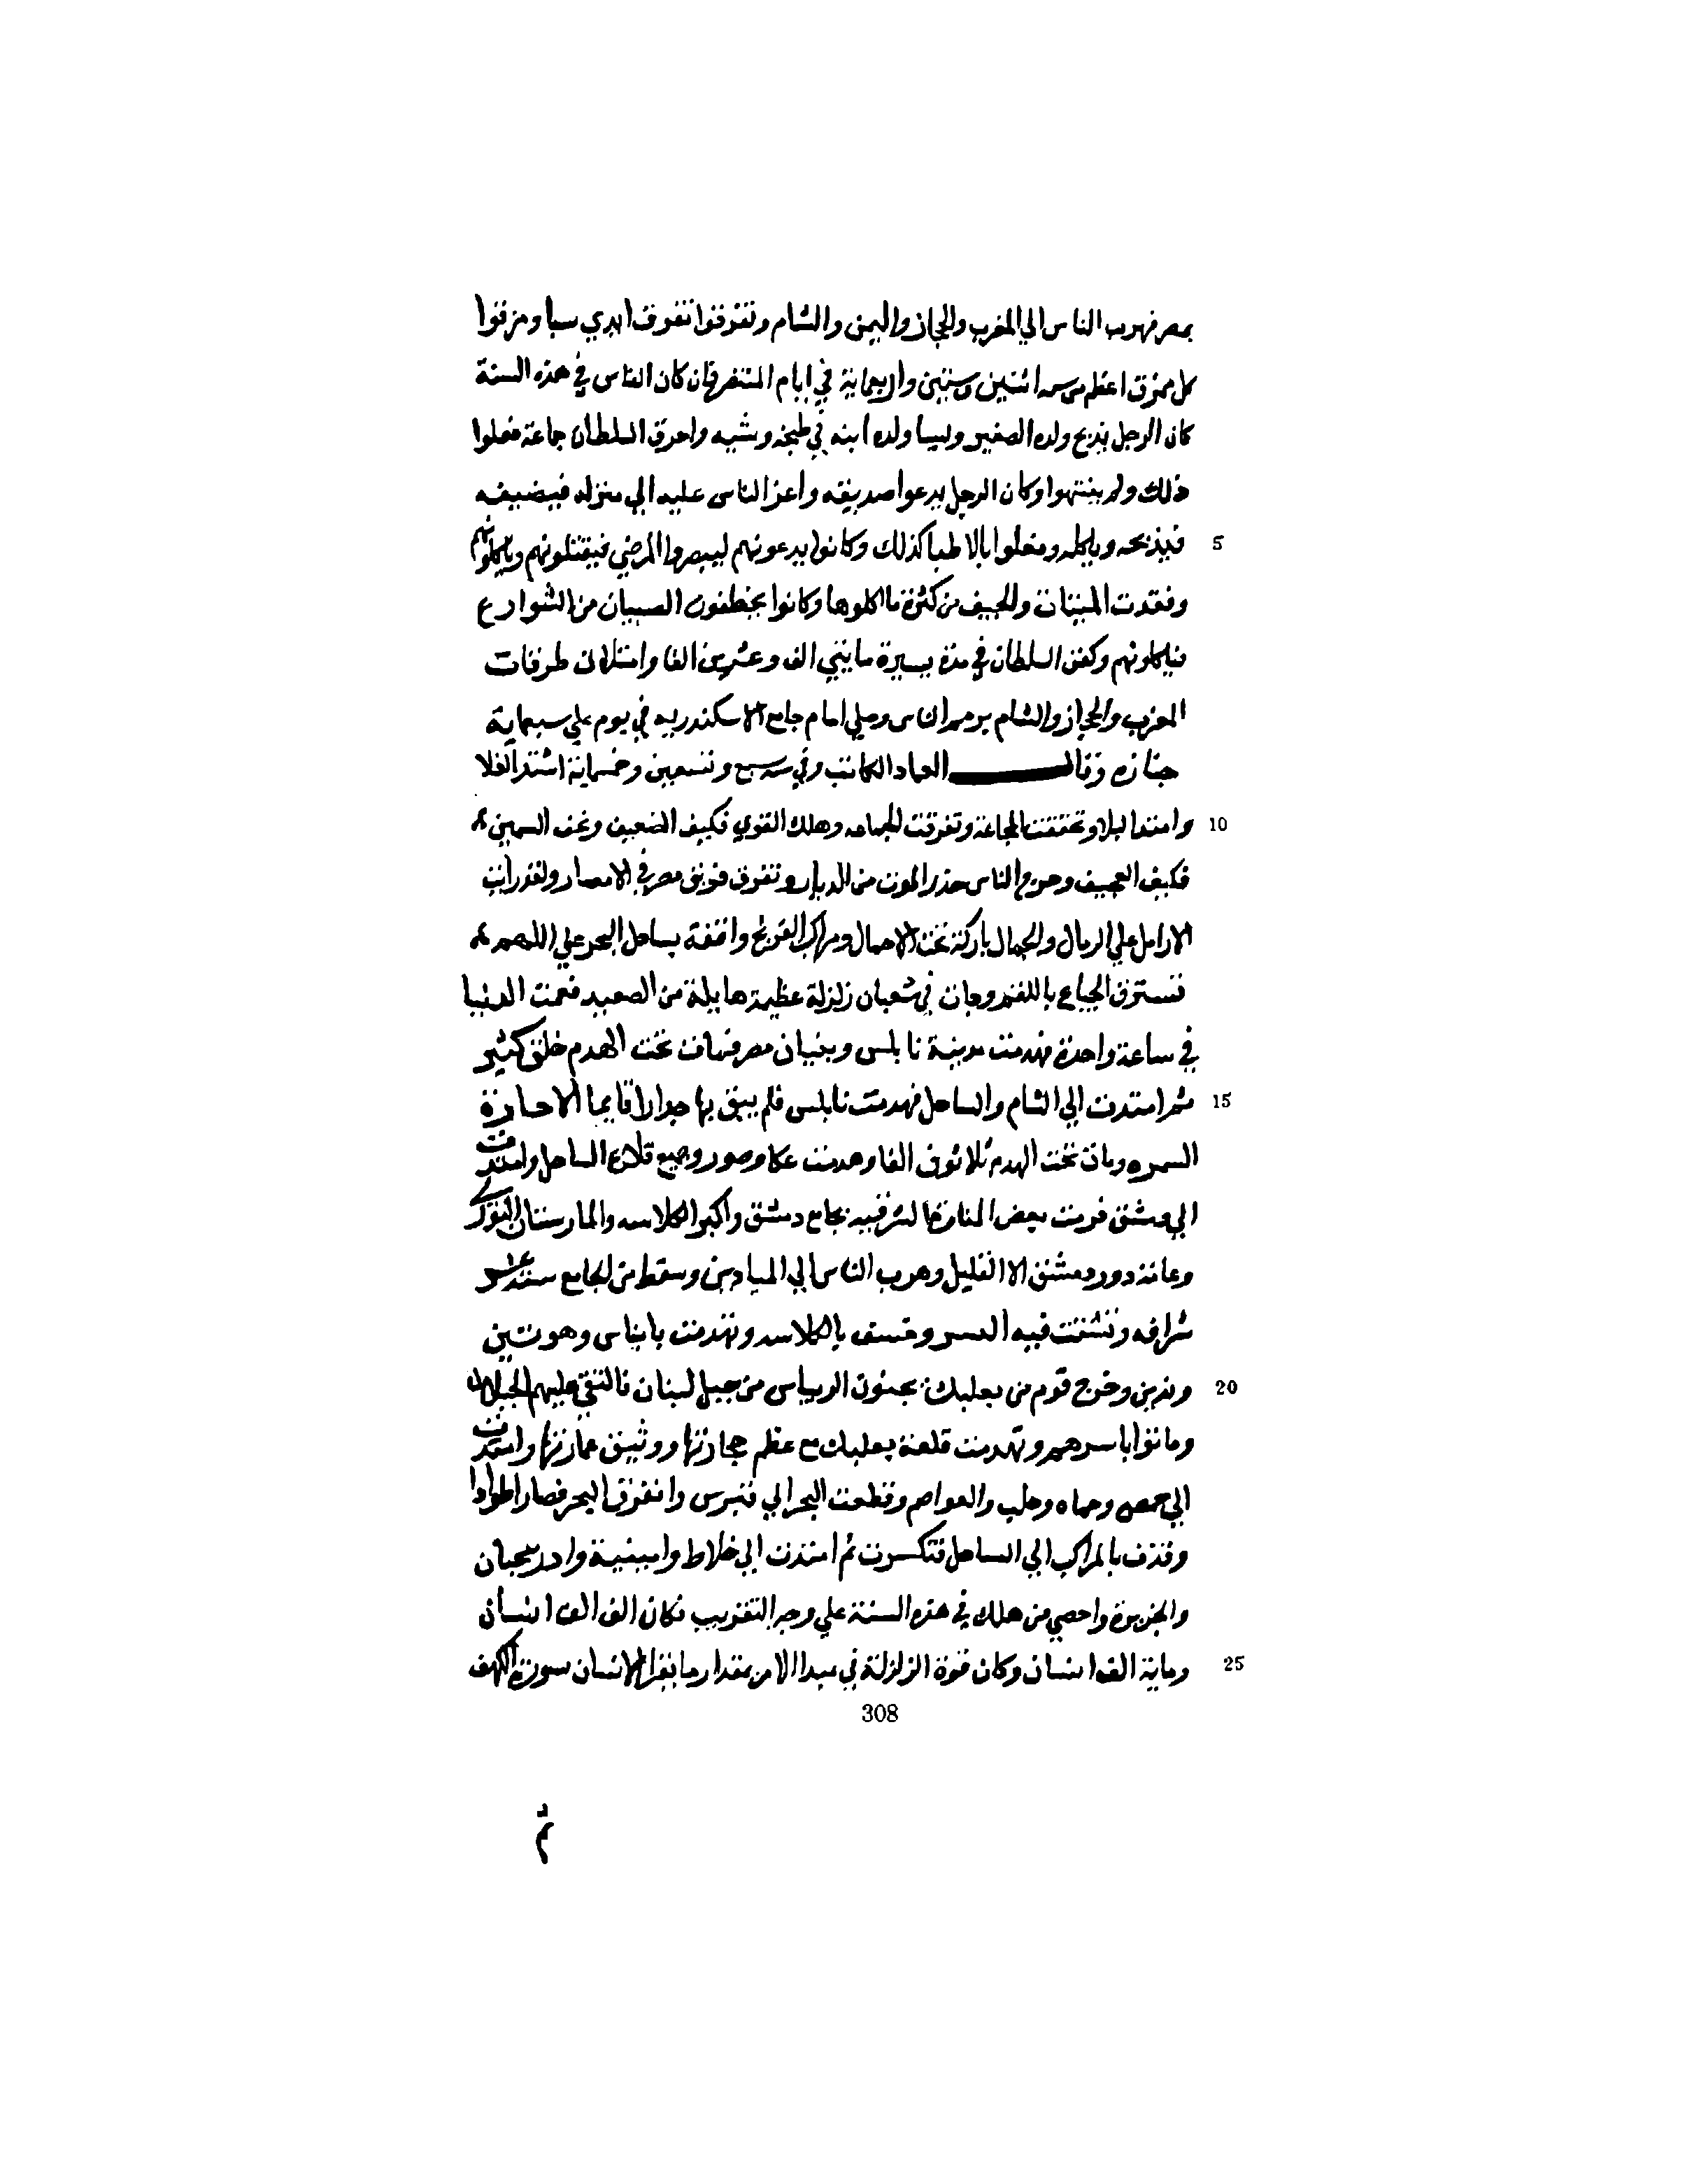 بمصر فهرب الناس الي المغرب والحجاز واليمن والشام وتفرقوا تفرق ايدي سبا ومزقوا
كل ممزق اعظم من سنه اثنتين وستين واربعماية في ايام المستنصر فان كان الناس في هذه السنة
كان الرجل يذبح ولده الصغير وتساعده امه في طبخه وشيه واحرق السلطان جماعة فعلوا
ذلك ولم ينتهوا وكان الرجل يدعوا صديقه واعز الناس عليه الي منزله فيضيفه
5 فيذبحه وياكله وفعلوا بالاطبا كذلك وكانوا يدعونهم ليبصروا المرضي فيقتلونهم وياكلونهم
وفقدت الميتات والجيف من كثرة ما اكلوها وكانوا يخطفون الصبيان من الشوارع
فياكلونهم وكفن السلطان في مدة يسيرة مايتي الف وعشرين الفا وامتلات طرقات
المغرب والحجاز والشام برمم الناس وصلي امام جامع الاسكندريه في يوم علي سبعماية
جنازه وقال العماد الكاتب وفي سنه سبع وتسعين وخمسماية اشتد الغلا
10 وامتد البلا وتحققت المجاعة وتفرقت الجماعه وهلك القوي فكيف الضعيف ونحف السمين
فكيف العجيف وخرج الناس حذر الموت من الديار وتفرق فريق مصر في الامصار ولقد رايت
الارامل علي الرمال والجمال باركة تحت الاحمال ومراكب الفرنج واقفة بساحل البحر علي اللقم
تسترق الجياع باللقم وجات في شعبان زلزلة عظيمة هايلة من الصعيد فعمت الدنيا
في ساعة واحدة فهدمت مدينة نابلس وبنيان مصر فمات تحت الهدم خلق كثير
15 ثم امتدت الي الشام والساحل فهدمت نابلس فلم يبق بها جدارا قايما الا حارة
السمره ومات تحت الهدم ثلاثون الفا وهدمت عكا وصور وجميع قلاع الساحل وامتدت
الي دمشق فرمت بعض المنارة الشرقيه بجامع دمشق واكبر الكلاسه والمارستان النوري
وعامة دور دمشق الا القليل وهرب الناس الي الميادين وسقط من الجامع ستة عشر
شرافه وتشققت قبه النسر وخسف بالكلاسه وتهدمت بانياس وهونين
20 وتبنين وخرج قوم من بعلبك يجنون الريباس من جبل لبنان فالتقي عليهم الجبلان
وماتوا باسرهم وتهدمت قلعة بعلبك مع عظم حجارتها ووثيق عمارتها وامتدت
الي حمص وحماه وحلب والعواصم وقطعت البحر الي قبرس وانفرق البحر فصار اطوادا
وقذف بالمراكب الي الساحل فتكسرت ثم امتدت الي خلاط وارمينية وادربيجان
والجزيرة واحصي من هلك في هذه السنة علي وجه التقريب فكان الف الف انسان
25 وماية الف انسان وكان قوة الزلزلة في مبدا الامر بمقدار ما يقرا الانسان سورة الكهف
308